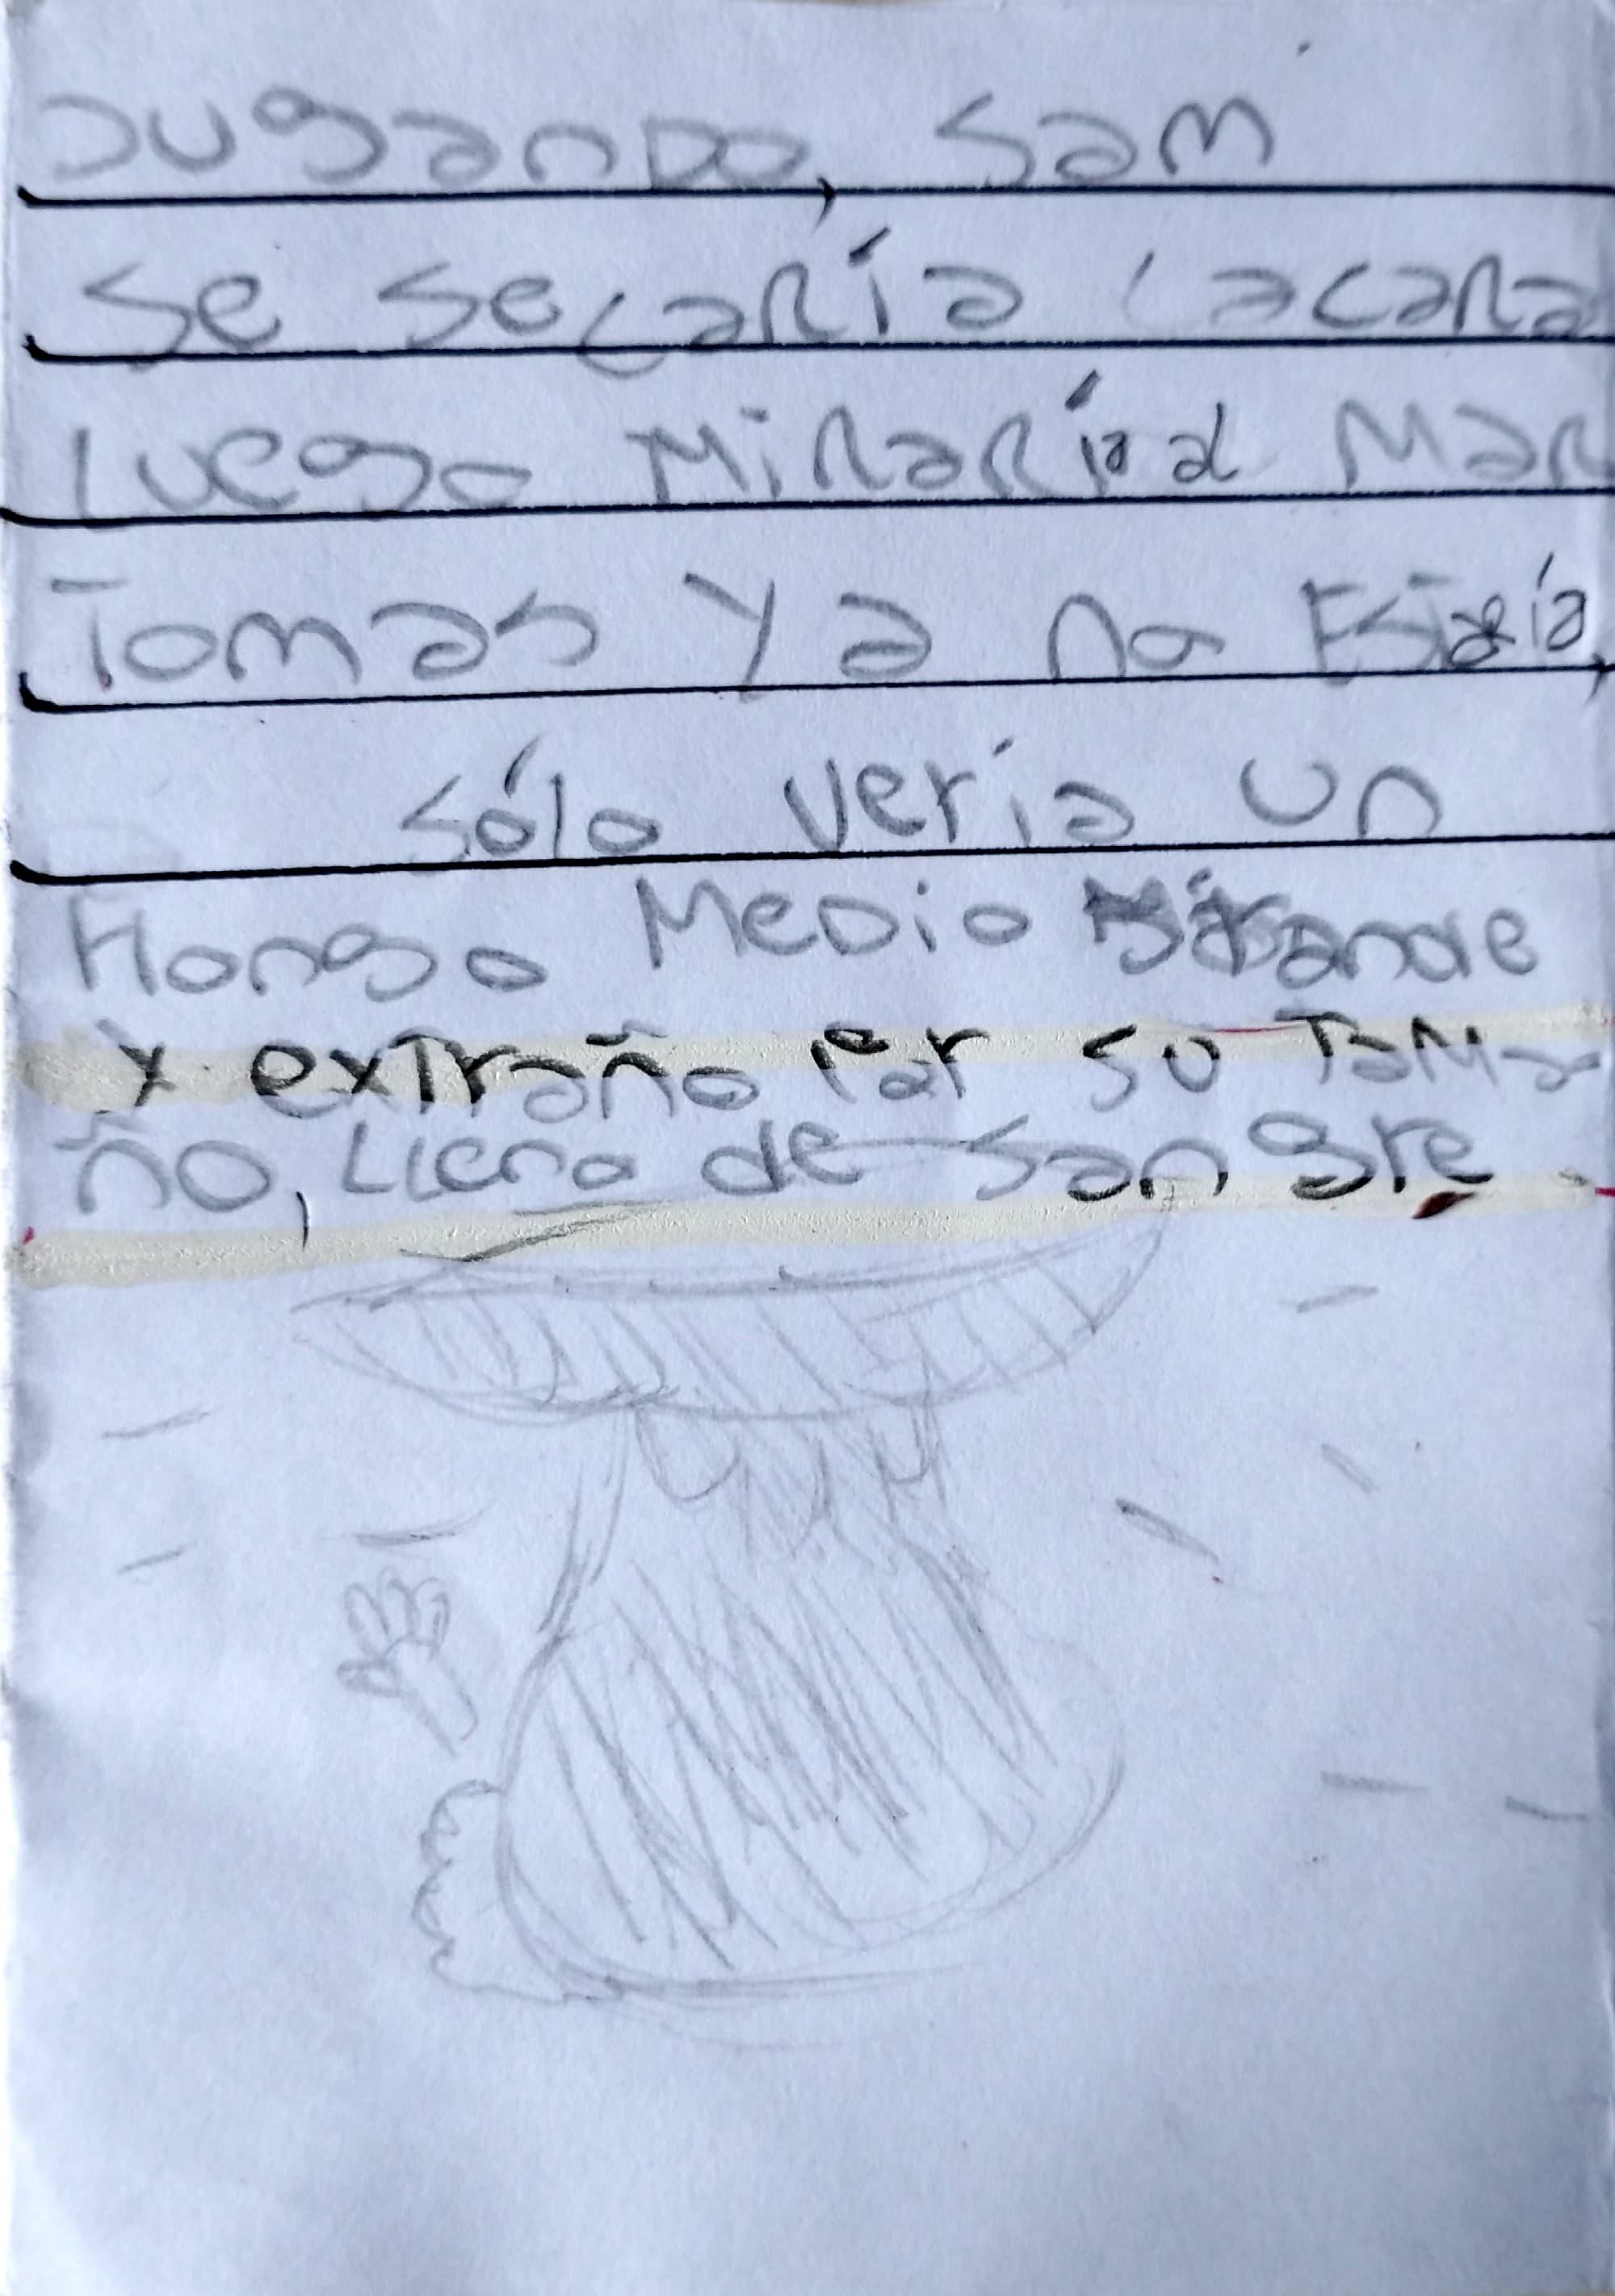 Jugando, Sam
se secaría la cara
luego Miraría al Mar
Tomas Ya no Estaría,
sólo vería un
Hongo Medio grande
y extraño por su Tama-
ño, LLeno de sangre.